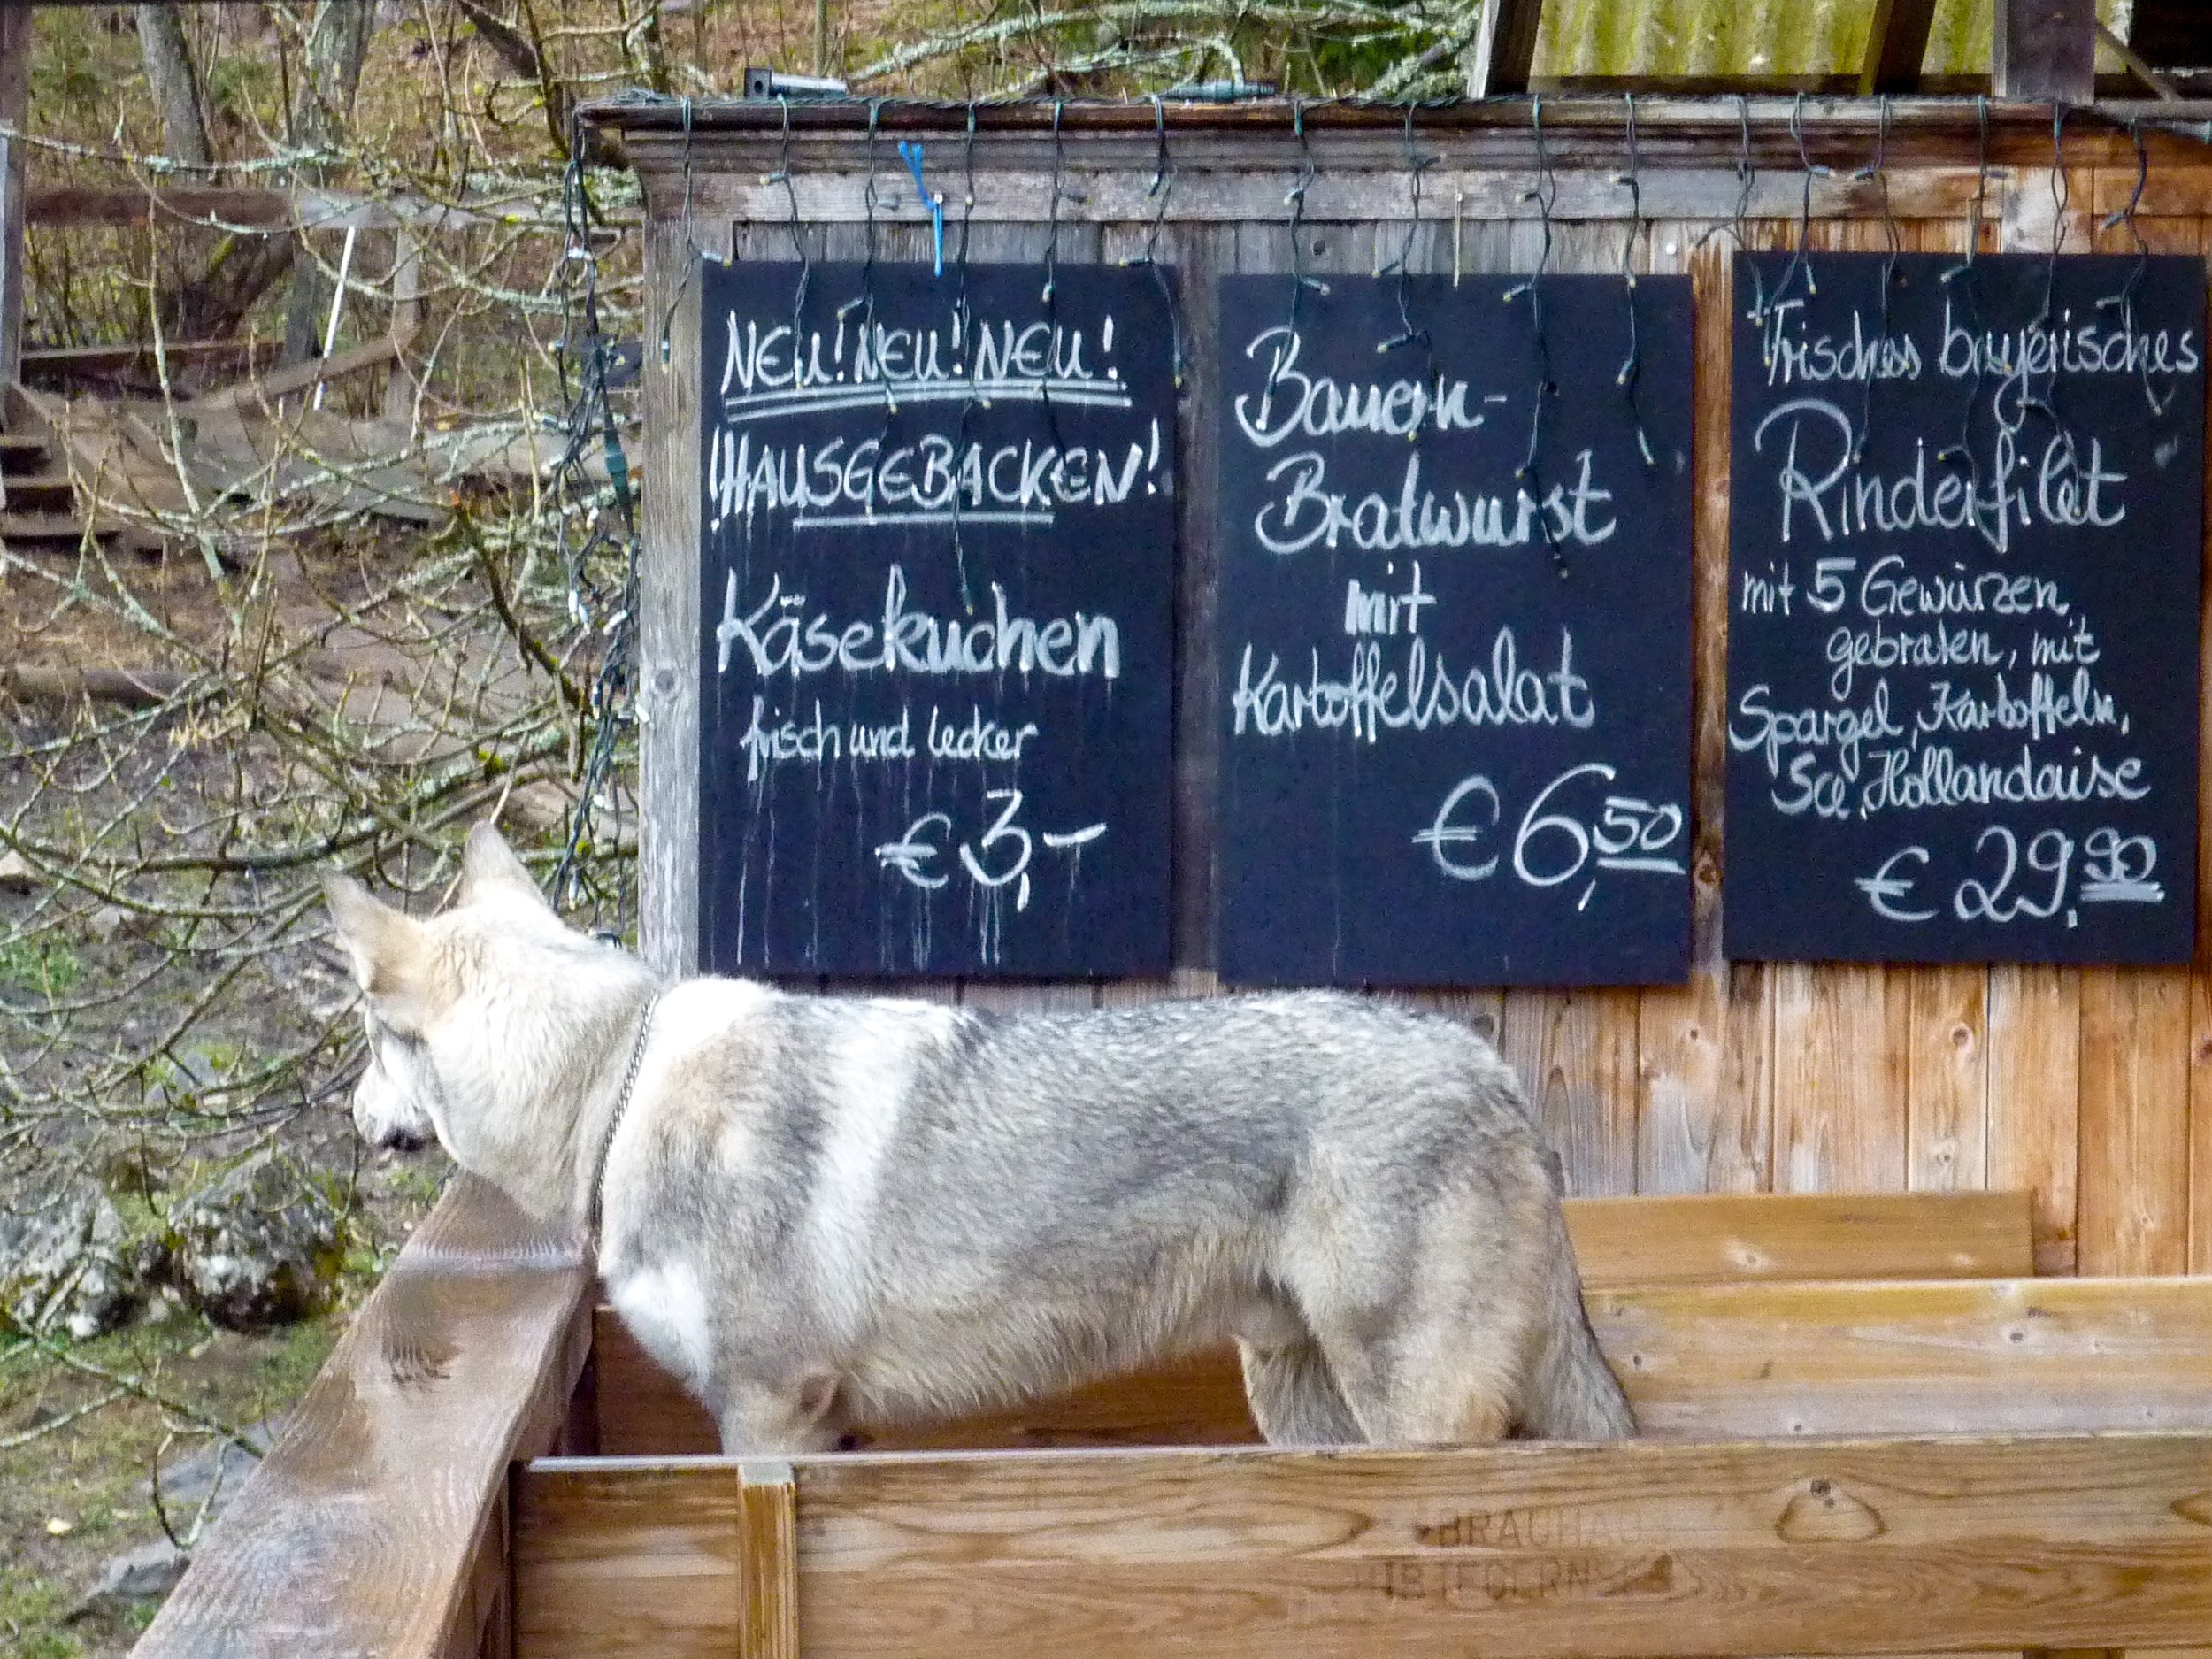 NEU! NEU! NEU!
!HAUSGEBACKEN!
Käsekuchen
frisch und lecker
€ 3,-
Bauern-
Bratwurst
mit
Kartoffelsalat
€ 6,50
Frisches bayerisches
Rinderfilet
mit 5 Gewürzen
gebraten, mit
Spargel, Kartoffeln,
Sce. Hollandaise
€ 29,90